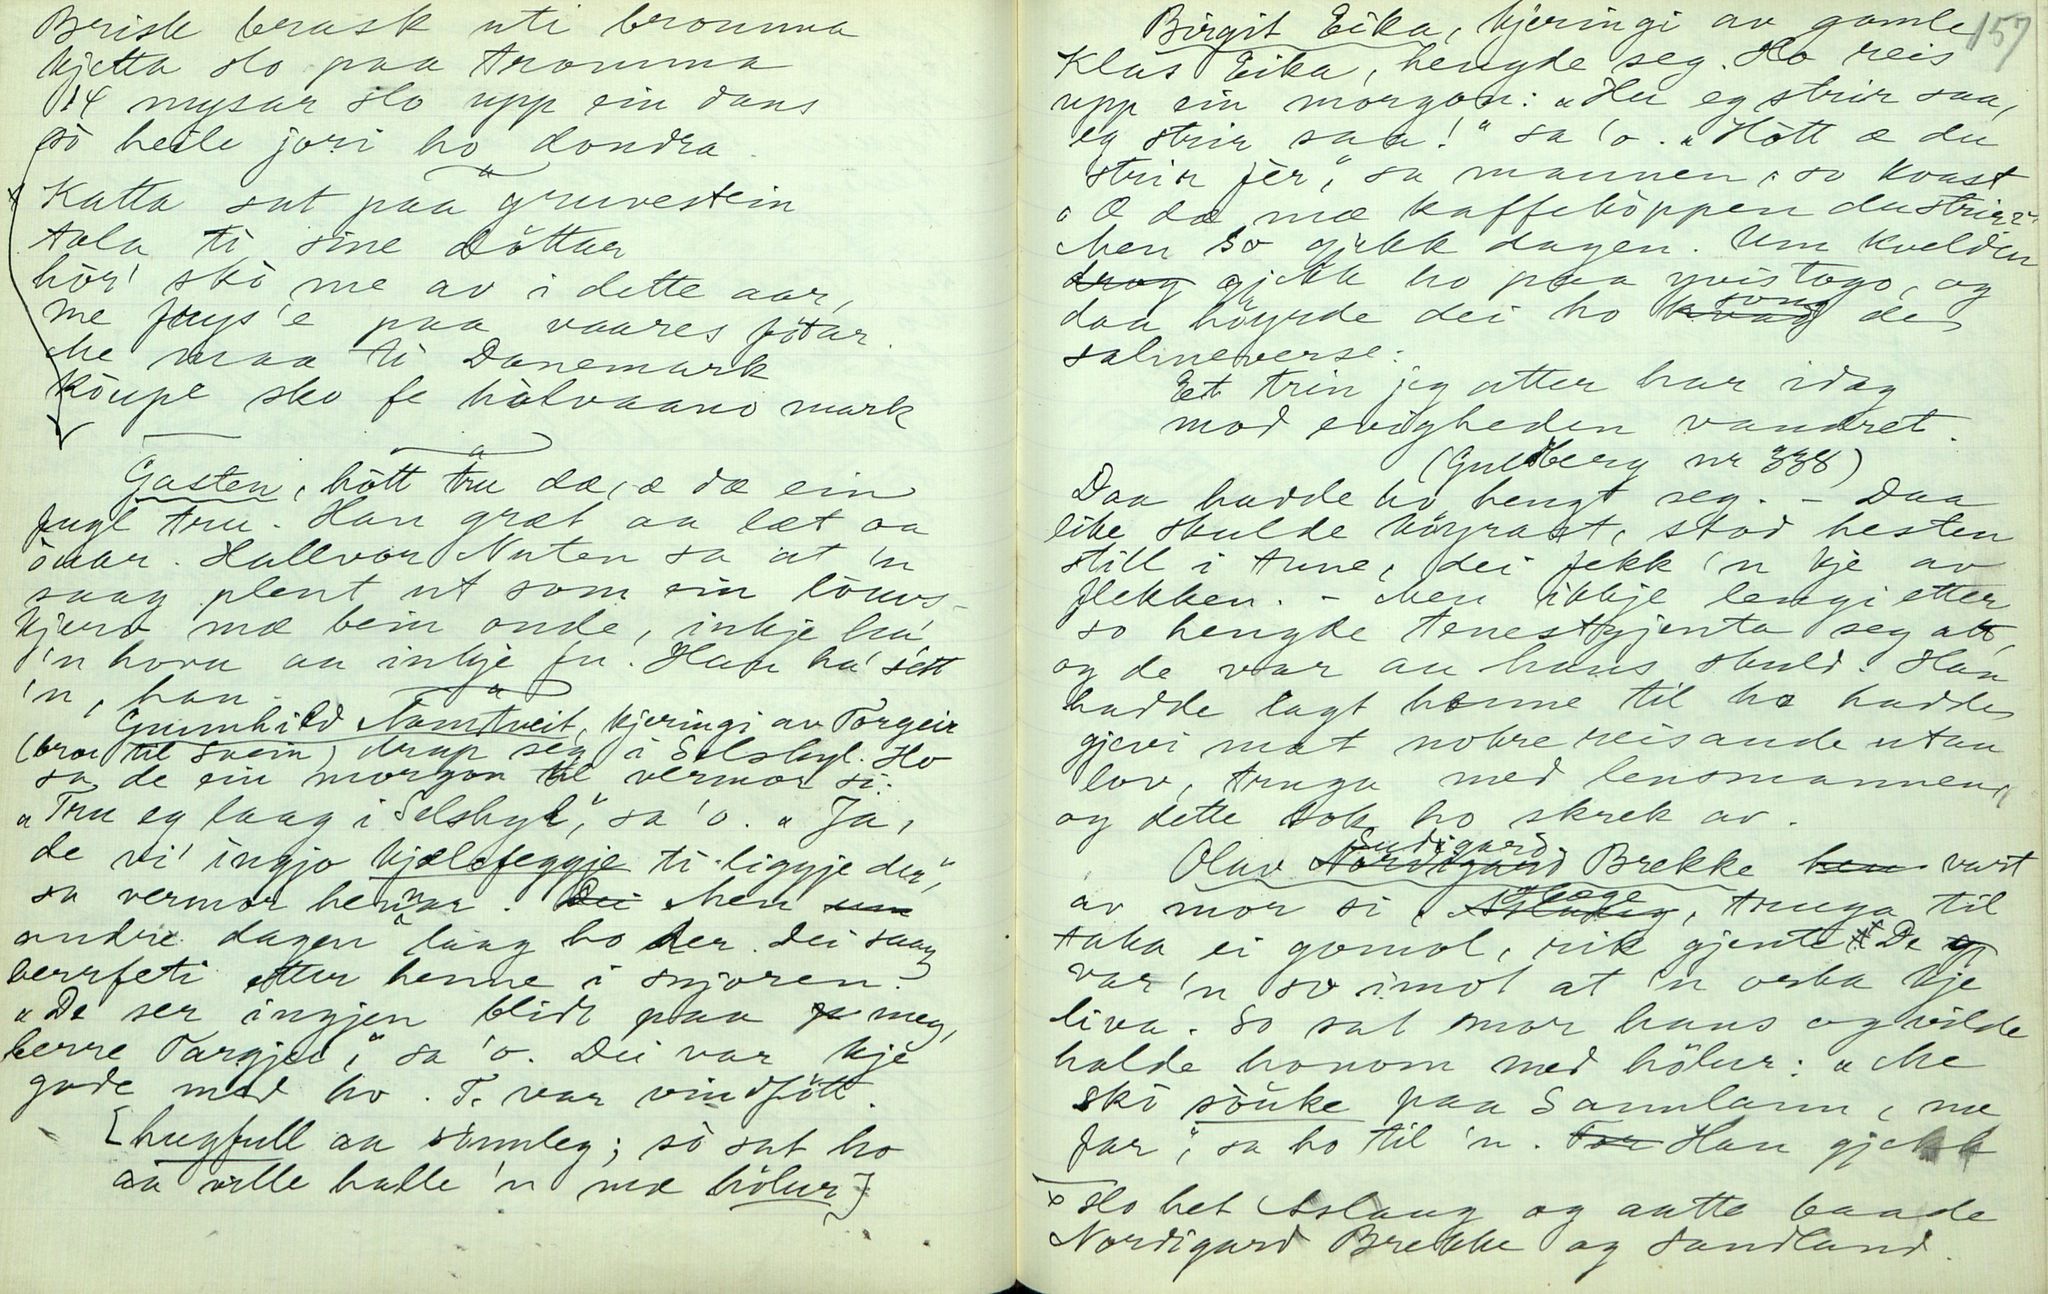 Brisk brask uti bronna
kjetta slo paa tromma
14 mysar slo upp ein dans
so heile jori ho dondra.
Katta sat paa gruvestein
tala ti sine döttar
hör' sko me av i dette aar,
me frys'e paa vaares fötar.
Me maa ti Danemark
köupe sko fe hölvaano mark
Gasten, hött tru dæ, æ dæ ein
fugl tru. Han græt aa læt aa
önar. Hallvor Nuten sa at 'n
saag plent ut som ein löuvs-
kjerv mæ bein onde, inkje ha'
'n hovu aa inkje fu. Han ha' sett
'n, han.
Gunnhild Namtveit, kjeringi av Torgeir
(bror til Svein) drap seg i Selshyl. Ho
sa de ein morgon til vermor si:
"Tru eg laag i Selshyl", sa 'o. "Ja,
de vi' ingjo kjælefeggje ti liggje der",
sa vermor hennar. Dei Men um
andre dagen laag ho der. Dei saag
berrfeti etter henne i snjoren.
"De ser ingjen blidt paa meg,
herre Targjei," sa 'o. Dei var kje
gode med ho. T. var vindfött.
[hugfull aa sömnleg; so sat ho
aa ville halle 'n mæ hölur]
157
Birgit Eika, kjeringi av gamle
Klas Eika, hengde seg. Ho reis
upp ein morgon: "Hu eg strir saa,
eg strir saa!" sa 'o. "Hött æ du
strir fer", sa mannen, so kvast
"Æ dæ mæ kaffeköppen du strir?"
Men so gjekk dagen. Um kvelden
drog gjekk ho paa yvistogo, og
daa höyrde dei ho kvad song de
salmeverse:
Et trin jeg atter har idag
mod evigheden vandret.
(Guldberg nr 338)
Daa hadde ho hengt seg. – Daa
like skulde köyrast, stod hesten
still i tune, dei fekk 'n kje av
flekken. – Men ikkje lengi etter
so hengde tenestgjenta seg att,
og de var au hans skuld. Han
hadde lagt henne til ho hadde
gjevi mat nokre reisande utan
lov, truga med lensmannen,
og dette tok ho skrek av.
Olav Nordigard Sudigard Brekke han vart
av mor si, Aaloge, truga til
taka ei gomol, rik gjente x De
var 'n so imot at 'n orka kje
liva. So sat mor hans og vilde
halde honom med hölur: "Me
sko söuke paa Sannlann, me
far", sa ho til 'n. For Han gjekk
x Ho het Aslaug og aatte baade
Nordigard Brekke og Sandland.